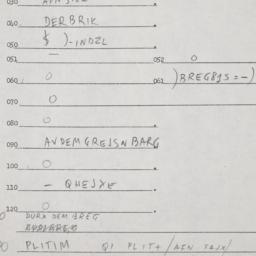 030
040 DERBRIK
050 $ )-INDZL
051
052 O
060 O
061 )BREG8JS=-)
070 O
080 O
090 AVDEMGREJSNBARG
100 O
110 - QHEJXE
120 O
DURX DEM BREG
PLITIM QI PLIT+/AIN